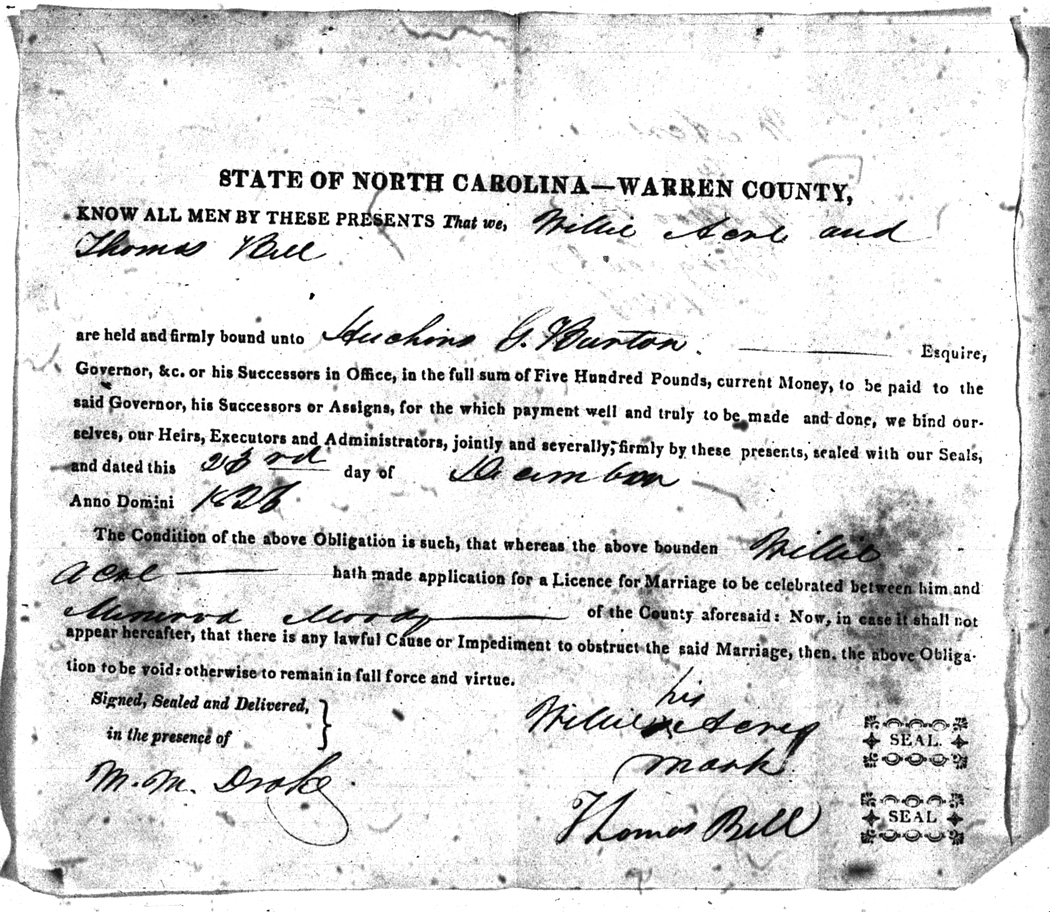 STATE OF NORTH CAROLINA—WARREN COUNTY,
KNOW ALL MEN BY THESE PRESENTS That we, Willie Acre and
Thomas Bell
are held and firmly bound unto Huchins G. Burton. Esquire,
Governor, &c. or his Successors in Office, in the full sum of Five Hundred Pounds, current Money, to be paid to the
said Governor, his Successors or Assigns, for the which payment well and truly to be made and done, we bind our-
selves, our Heirs, Executors and Administrators, jointly and severally, firmly by these presents, sealed with our Seals,
and dated this 23rd day of December
Anno Domini 1826
The Condition of the above Obligation is such, that whereas the above bounden Willie
Acre hath made application for a Licence for Marriage to be celebrated between him and
Moody of the County aforesaid: Now, in case it shall not
appear hereafter, that there is any lawful Cause or Impediment to obstruct the said Marriage, then, the above Obliga-
tion to be void: otherwise to remain in full force and virtue.
Signed, Sealed and Delivered,
in the presence of
M. M. Drake
his
Willie x Acrey
mark
SEAL.
Thomas Bell
SEAL